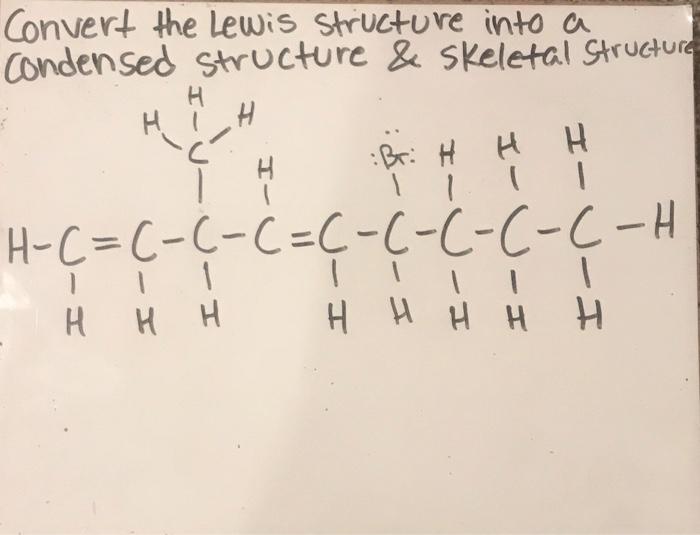 Convert the Lewis structure into a
condensed structure & skeletal structure
H
H H
C
H :Br: H H H
H-C=C-C-C=C-C-C-C-C-H
H H H H H H H H